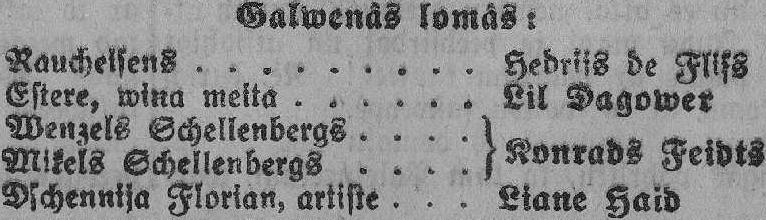 Galwenâs lomâs:
Raucheisens . . . . . . . . . Hedrijs de Flifs
Estere, wina meita . . . . . . Lil Dagower
Wenzels Schellenbergs . . . .
Mikels Schellenbergs . . . . } Konrads Feidts
Dschennija Florian, artiste . . . Liane Haid